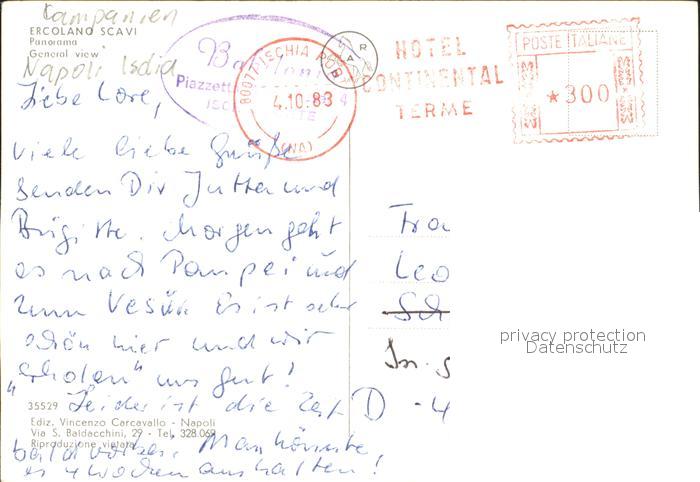 Kampanien
ERCOLANO SCAVI
Panorama
General view
Napoli Ischia
Liebe Lore,
viele liebe Grüße
senden Dir Jutta und
Brigitte. Morgen geht
es nach Pompei und
zum Vesuv. Es ist sehr
schön hier und wir
"erholen" uns gut!
Leider ist die Zeit
bald vorbei. Man könnte
es 4 Wochen aushalten!
35529
Ediz. Vincenzo Carcavallo - Napoli
Via S. Baldacchini, 29 - Tel. 328.069
Riproduzione vietata
Piazzett
80077 ISCHIA PO
4.10.83
(NA)
HOTEL
CONTINENTAL
TERME
POSTE ITALIANE
★300
Fra
Leo
D - 4
privacy protection
Datenschutz